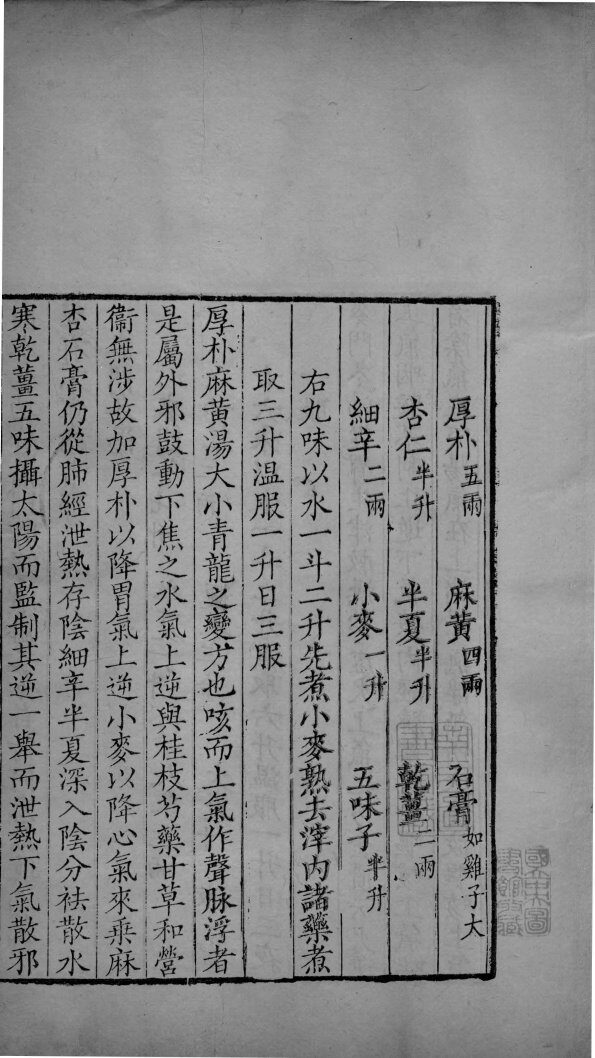 厚朴五兩 麻黃四兩 石膏如雞子大
杏仁半升 半夏半升 乾薑二兩
細辛二兩 小麥一升 五味子半升
右九味以水一斗二升先煮小麥熟去滓內諸藥煮
取三升温服一升日三服
厚朴麻黃湯大小青龍之變方也咳而上氣作聲脉浮者
是屬外邪鼓動下焦之水氣上逆與桂枝芍藥甘草和營
衞無涉故加厚朴以降胃氣上逆小麥以降心氣來乘麻
杏石膏仍從肺經泄熱存陰細辛半夏深入陰分祛散水
寒乾薑五味攝太陽而監制其逆一舉而泄熱下氣散邪